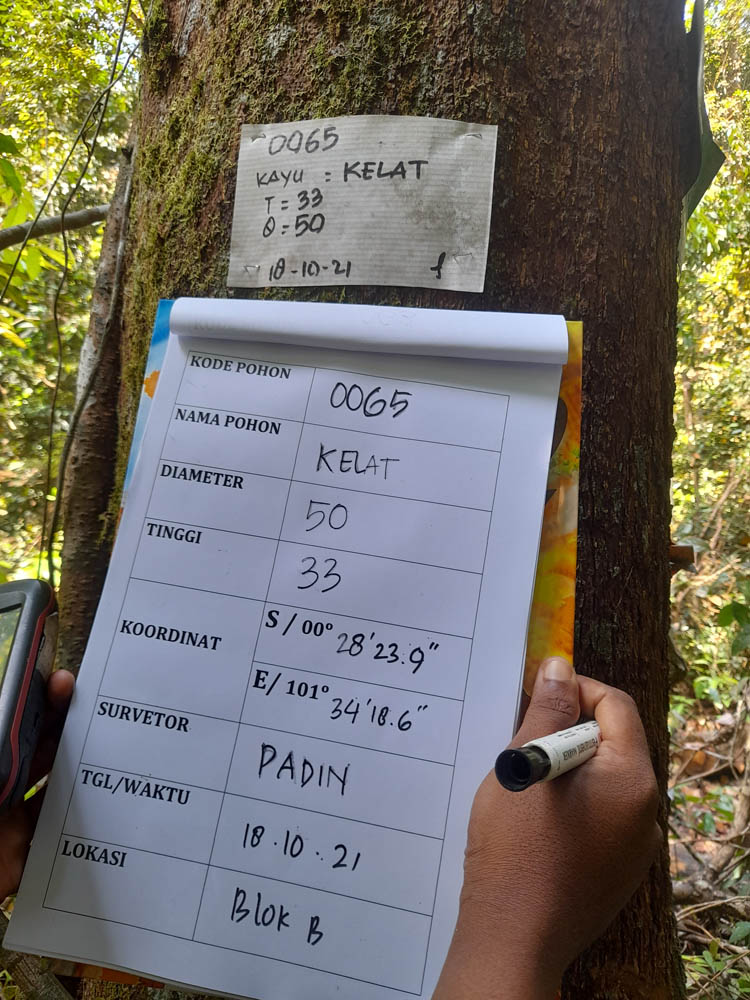 0065
KAYU : KELAT
T = 33
Ø = 50
18-10-21
KODE POHON 0065
NAMA POHON KELAT
DIAMETER 50
TINGGI 33
KOORDINAT S / 00° 28'23.9"
E/ 101° 34'18.6"
SURVETOR PADIN
TGL/WAKTU 18.10.21
LOKASI BLOK B